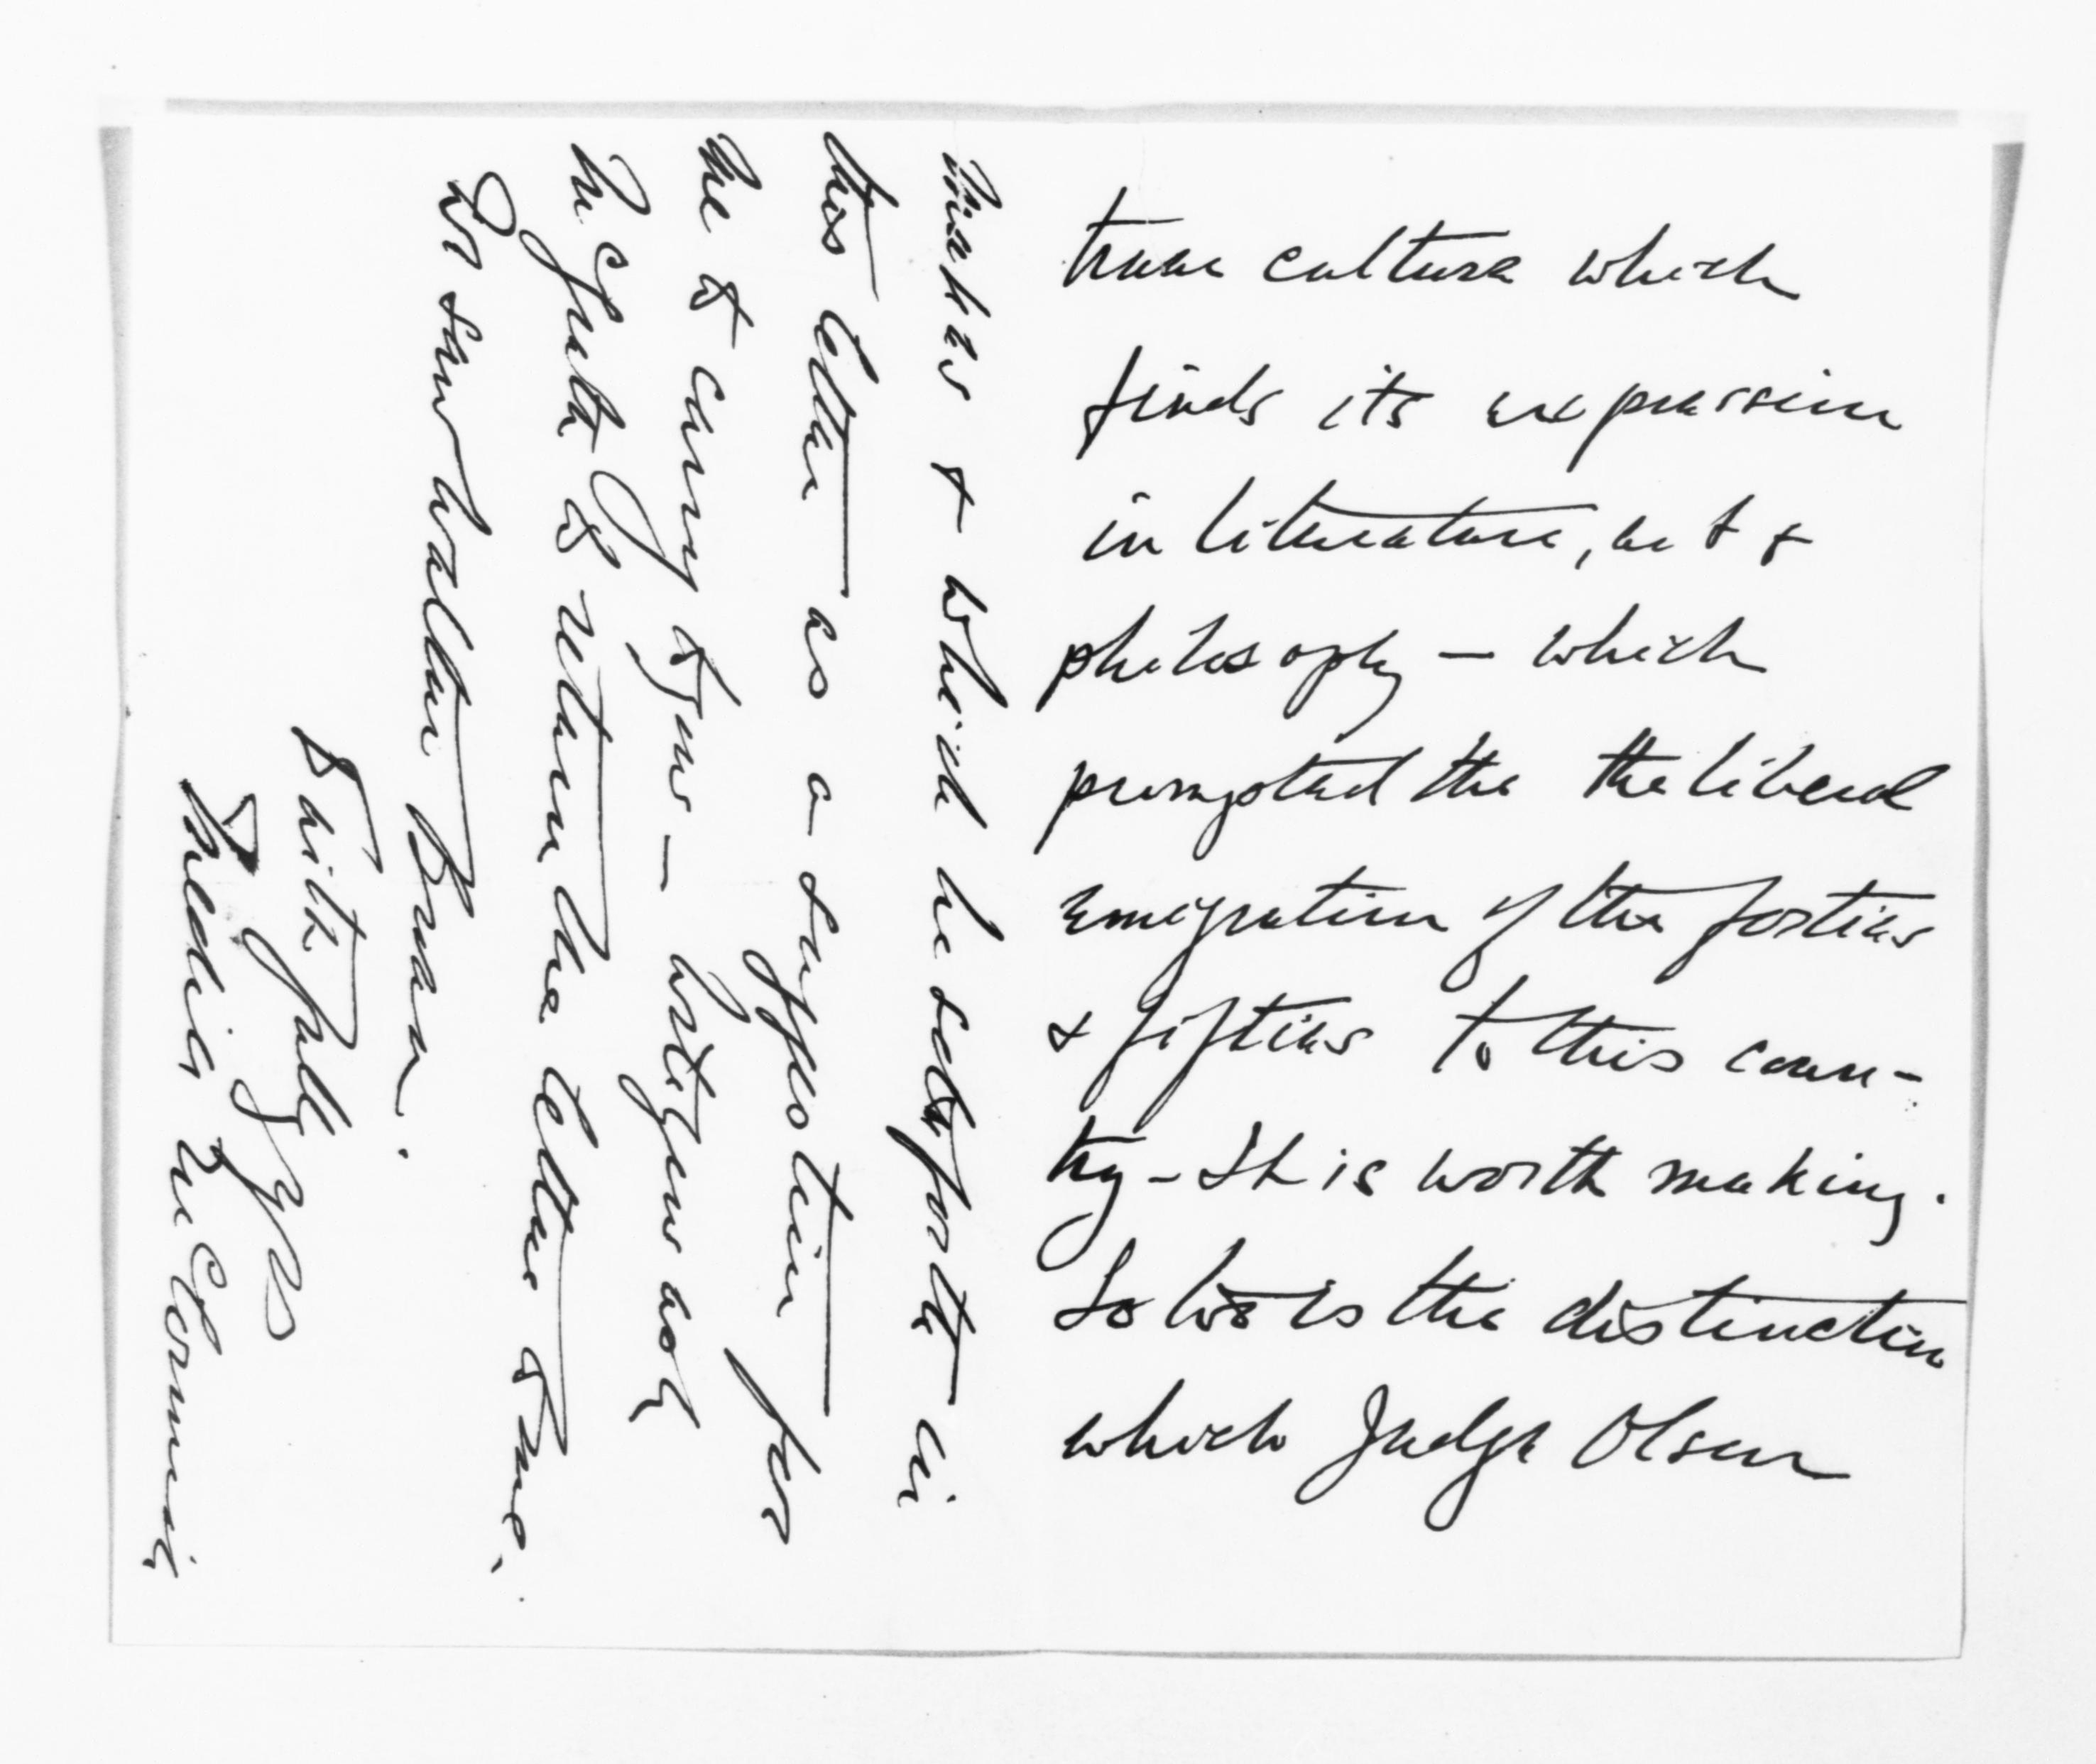 true culture which
finds its expression
in literature, art &
philosophy — which
prompted the the liberal
emigration of the forties
& fifties to this coun-
try - It is worth making.
So too is the distinction
which Judge Olsen
makes & which he sets forth in
this letter as a suggestion for
me to carry to you — will you ask
McGrath to return the letter to me.
We saw Walter Brown.
Faithfully yrs
Medill McCormick